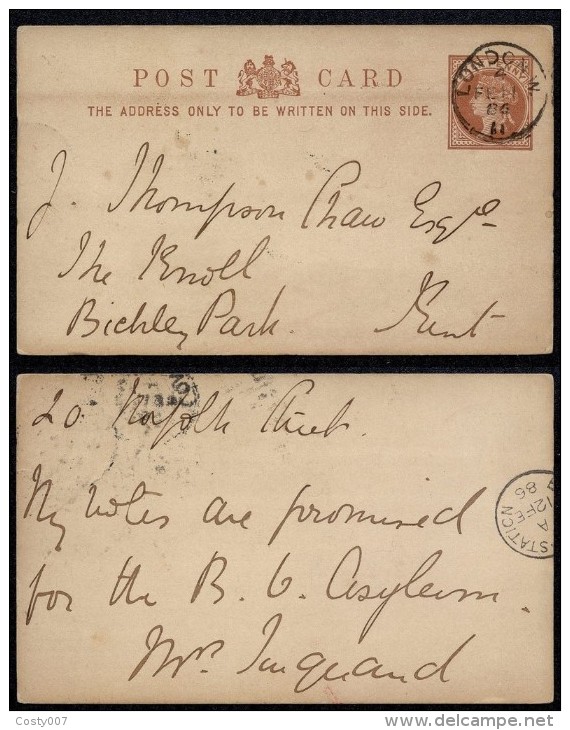 POST CARD
THE ADDRESS ONLY TO BE WRITTEN ON THIS SIDE.
LONDON.W
4
FE 11
86
11
J. Thompson Chaw Esqre
The Knoll
Bickley Park. Kent
20 Norfolk Street.
My votes are promised
for the B. O. Asylum.
Mrs
STATION
A
12 FE
86
Costy007
delcampe.net